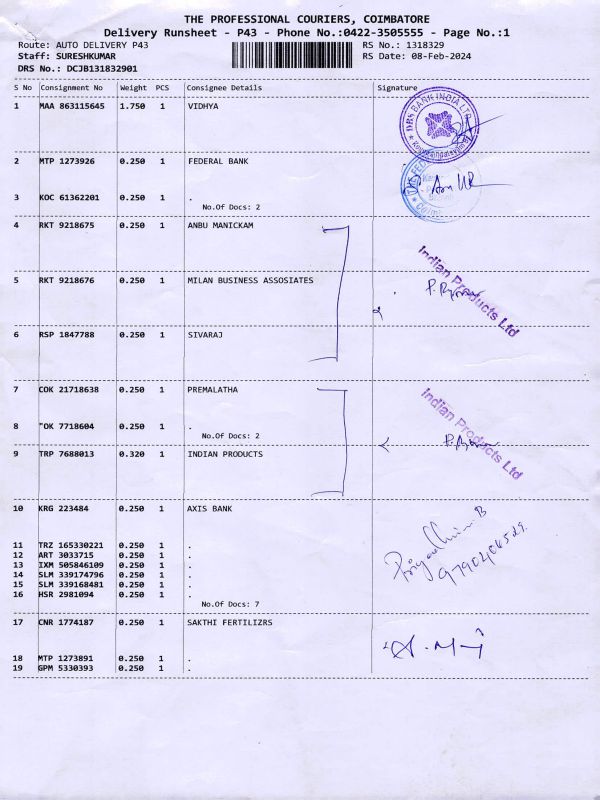 THE PROFESSIONAL COURIERS, COIMBATORE
Delivery Runsheet - P43 - Phone No.:0422-3505555 - Page No.:1
Route: AUTO DELIVERY P43 RS No.: 1318329
Staff: SURESHKUMAR RS Date: 08-Feb-2024
DRS No.: DCJB131832901
S No Consignment No Weight PCS Consignee Details Signature
1 MAA 863115645 1.750 1 VIDHYA
DBS BANK INDIA LTD
2 MTP 1273926 0.250 1 FEDERAL BANK
3 KOC 61362201 0.250 1 .
No.Of Docs: 2
4 RKT 9218675 0.250 1 ANBU MANICKAM
5 RKT 9218676 0.250 1 MILAN BUSINESS ASSOSIATES
Indian Products Ltd
6 RSP 1847788 0.250 1 SIVARAJ
7 COK 21718638 0.250 1 PREMALATHA
8 "OK 7718604 0.250 1 .
No.Of Docs: 2
Indian Products Ltd
9 TRP 7688013 0.320 1 INDIAN PRODUCTS
10 KRG 223484 0.250 1 AXIS BANK
11 TRZ 165330221 0.250 1 .
12 ART 3033715 0.250 1 .
13 IXM 505846109 0.250 1 .
14 SLM 339174796 0.250 1 .
15 SLM 339168481 0.250 1 .
16 HSR 2981094 0.250 1 .
No.Of Docs: 7
17 CNR 1774187 0.250 1 SAKTHI FERTILIZRS
18 MTP 1273891 0.250 1 .
19 GPM 5330393 0.250 1 .